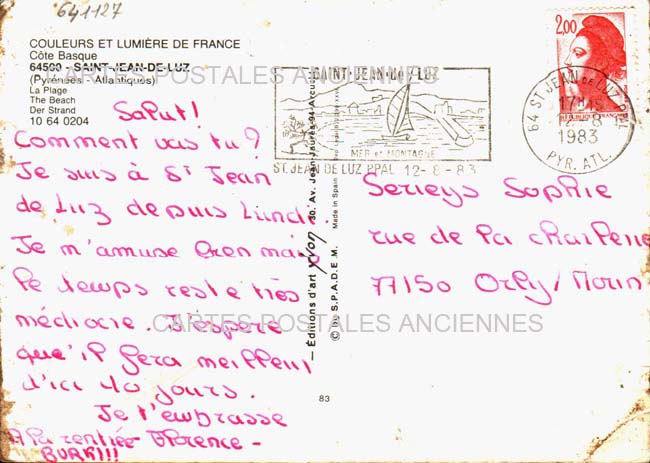 641127
COULEURS ET LUMIÈRE DE FRANCE
Côte Basque
64500 - SAINT-JEAN-DE-LUZ
(Pyrénées - Atlantiques)
La Plage
The Beach
Der Strand
10 64 0204
CARTES POSTALES ANCIENNES
Salut!
Comment vas tu?
Je suis à St Jean
de Luz depuis Lundi
Je m'amuse bien mais
le temps reste très
médiocre. J'espère
que'il fera meilleur
d'ici 10 jours.
Je t'embrasse
A la rentrée Florence -
BURK!!!
SAINT-JEAN-DE-LUZ
MER et MONTAGNE
ST JEAN DE LUZ PPAL 12-8-83
Editions d'art yvon 30, Av. Jean-Jaurès-94-Arcueil
Made in Spain
© by S.P.A.D.E.M.
83
2,00
RÉPUBLIQUE FRANÇAISE
64 ST JEAN DE LUZ PPAL
17H15
12-8
1983
PYR. ATL.
Serieys Sophie
rue de la
77150 Orly/Morin
CARTES POSTALES ANCIENNES